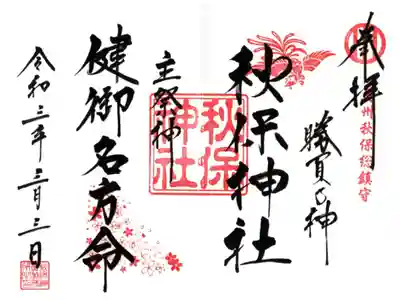 奉拝
州秋保総鎮守
勝負の神
秋保神社
秋保
神社
主祭神
健御名方命
令和三年三月三日